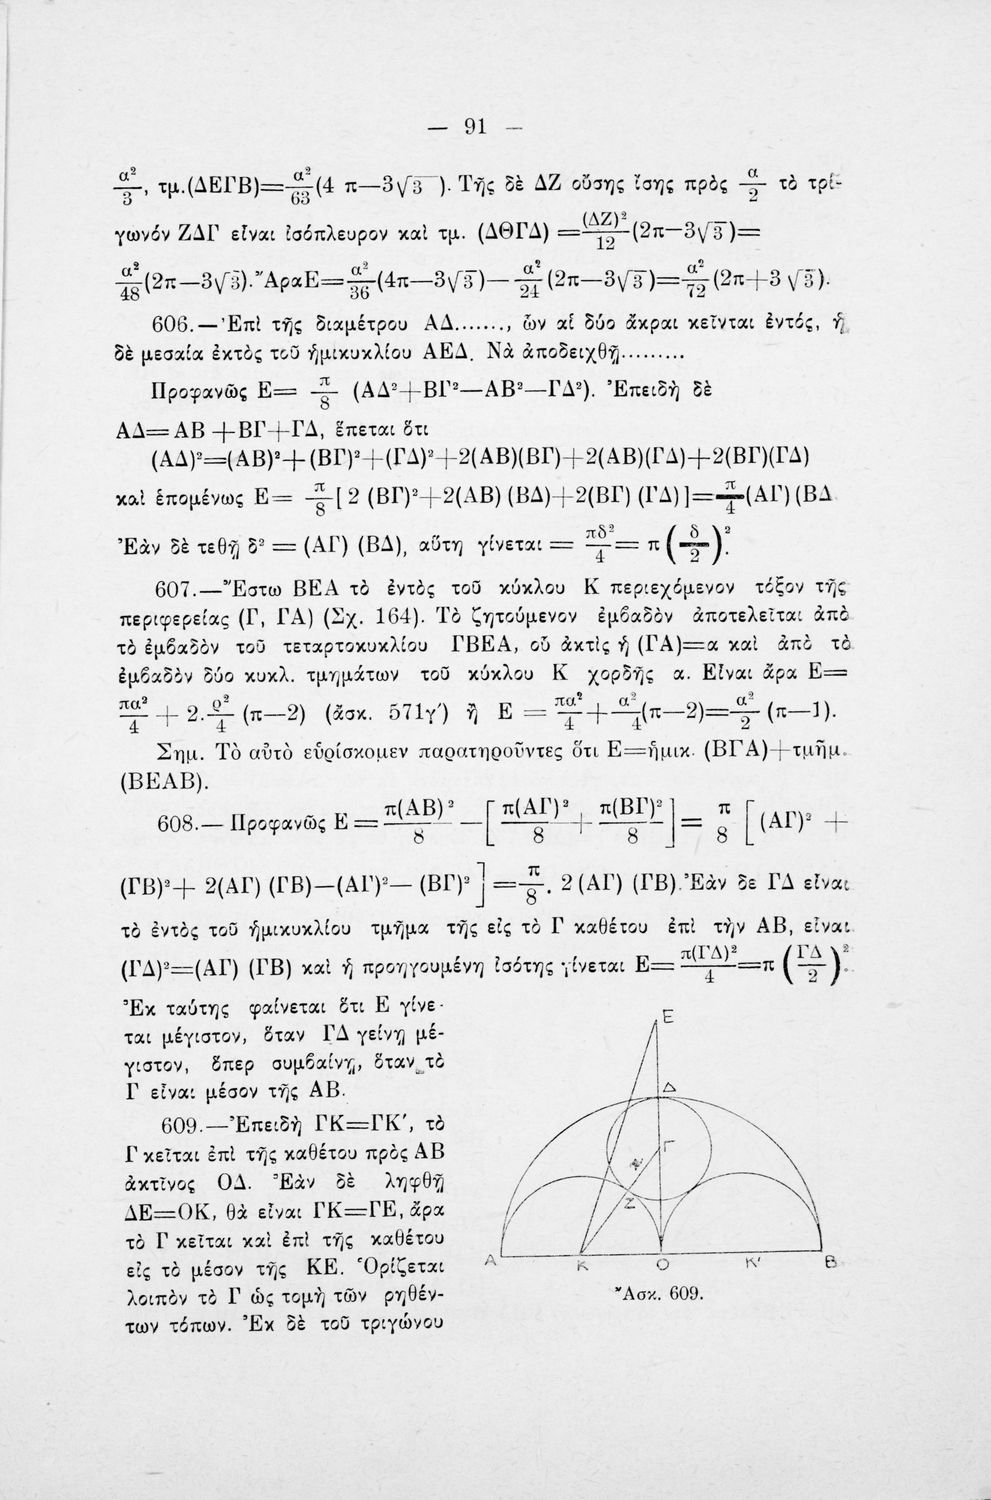 — 91 —
α²/3, τμ.(ΔΕΓΒ)=α²/63(4 π—3√3 ). Τῆς δὲ ΔΖ οὔσης ἴσης πρὸς α/2 τὸ τρί-
γωνόν ΖΔΓ εἶναι ἰσόπλευρον καὶ τμ. (ΔΘΓΔ) =(ΔΖ)²/12(2π—3√3 )=
α²/48(2π—3√3).῎ΑραΕ=α²/36(4π—3√3)— α²/24(2π—3√3)=α²/72(2π+3 √3).
606.—᾿Επὶ τῆς διαμέτρου ΑΔ......., ὧν αἱ δύο ἄκραι κεῖνται ἐντός, ἡ
δὲ μεσαία ἐκτὸς τοῦ ἡμικυκλίου ΑΕΔ. Νὰ ἀποδειχθῇ.........
Προφανῶς Ε= π/8 (ΑΔ²+ΒΓ²—ΑΒ²—ΓΔ²). ᾿Επειδὴ δὲ
ΑΔ=ΑΒ +ΒΓ+ΓΔ, ἕπεται ὅτι
(ΑΔ)²=(ΑΒ)²+(ΒΓ)²+(ΓΔ)²+2(ΑΒ)(ΒΓ)+2(ΑΒ)(ΓΔ)+2(ΒΓ)(ΓΔ)
καὶ ἑπομένως Ε= π/8[ 2 (ΒΓ)²+2(ΑΒ) (ΒΔ)+2(ΒΓ) (ΓΔ)]=π/4(ΑΓ)(ΒΔ
᾿Εὰν δὲ τεθῇ δ² = (ΑΓ) (ΒΔ), αὕτη γίνεται = πδ²/4= π(δ/2)².
607.—῎Εστω ΒΕΑ τὸ ἐντὸς τοῦ κύκλου Κ περιεχόμενον τόξον τῆς
περιφερείας (Γ, ΓΑ) (Σχ. 164). Τὸ ζητούμενον ἐμβαδὸν ἀποτελεῖται ἀπὸ
τὸ ἐμβαδὸν τοῦ τεταρτοκυκλίου ΓΒΕΑ, οὗ ἀκτὶς ἡ (ΓΑ)=α καὶ ἀπὸ τὸ
ἐμβαδὸν δύο κυκλ. τμημάτων τοῦ κύκλου Κ χορδῆς α. Εἶναι ἄρα Ε=
πα²/4 + 2.ρ²/4 (π—2) (ἄσκ. 571γ′) ἢ Ε = πα²/4+α²/4(π—2)=α²/2 (π—1).
Σημ. Τὸ αὐτὸ εὑρίσκομεν παρατηροῦντες ὅτι Ε=ἡμικ. (ΒΓΑ)+τμῆμ.
(ΒΕΑΒ).
608.— Προφανῶς Ε = π(ΑΒ)²/8 —[π(ΑΓ)²/8 + π(ΒΓ)²/8] = π/8 [(ΑΓ)² +
(ΓΒ)²+ 2(ΑΓ) (ΓΒ)—(ΑΓ)²— (ΒΓ)²] =π/8. 2 (ΑΓ) (ΓΒ).᾿Εὰν δε ΓΔ εἶναι
τὸ ἐντὸς τοῦ ἡμικυκλίου τμῆμα τῆς εἰς τὸ Γ καθέτου ἐπὶ τὴν ΑΒ, εἶναι
(ΓΔ)²=(ΑΓ) (ΓΒ) καὶ ἡ προηγουμένη ἰσότης γίνεται Ε= π(ΓΔ)²/4=π (ΓΔ/2)².
᾿Εκ ταύτης φαίνεται ὅτι Ε γίνε-
ται μέγιστον, ὅταν ΓΔ γείνῃ μέ-
γιστον, ὅπερ συμβαίνῃ, ὅταν τὸ
Γ εἶναι μέσον τῆς ΑΒ.
609.—᾿Επειδὴ ΓΚ=ΓΚ′, τὸ
Γ κεῖται ἐπὶ τῆς καθέτου πρὸς ΑΒ
ἀκτῖνος ΟΔ. ᾿Εὰν δὲ ληφθῇ
ΔΕ=ΟΚ, θὰ εἶναι ΓΚ=ΓΕ, ἄρα
τὸ Γ κεῖται καὶ ἐπὶ τῆς καθέτου
εἰς τὸ μέσον τῆς ΚΕ. ῾Ορίζεται
λοιπὸν τὸ Γ ὡς τομὴ τῶν ρηθέν-
των τόπων. ᾿Εκ δὲ τοῦ τριγώνου
Ε
Δ
Γ
Ζ
Α Κ Ο Κ' Β
῎Ασκ. 609.